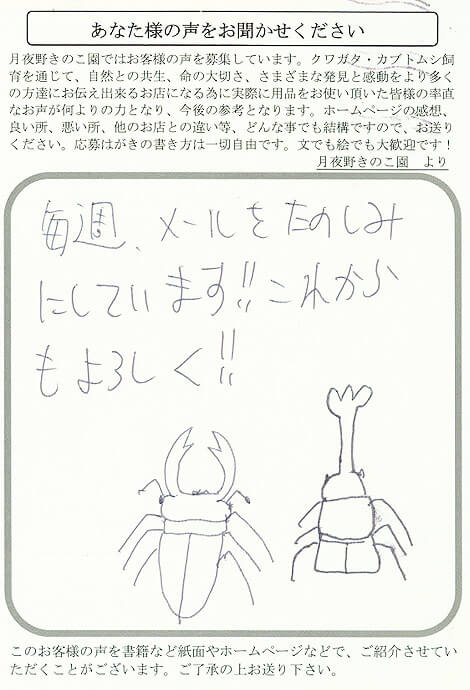 あなた様の声をお聞かせください
月夜野きのこ園ではお客様の声を募集しています。クワガタ・カブトムシ飼
育を通じて、自然との共生、命の大切さ、さまざまな発見と感動をより多く
の方達にお伝え出来るお店になる為に実際に用品をお使い頂いた皆様の率直
なお声が何よりの力となり、今後の参考となります。ホームページの感想、
良い所、悪い所、他のお店との違い等、どんな事でも結構ですので、お送り
ください。応募はがきの書き方は一切自由です。文でも絵でも大歓迎です！
月夜野きのこ園　より
毎週、メールをたのしみ
にしています!!これから
もよろしく!!
このお客様の声を書籍など紙面やホームページなどで、ご紹介させてい
ただくことがございます。ご了承の上お送り下さい。